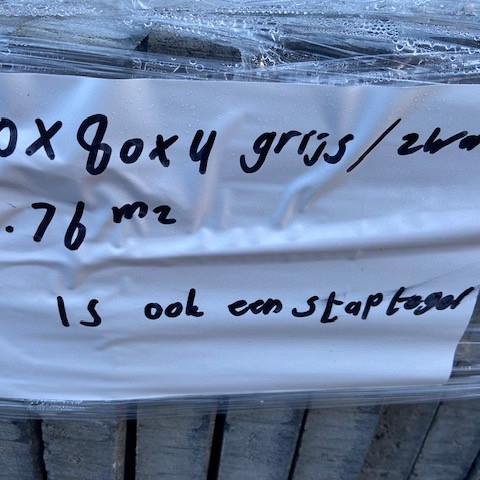 0x80x4 grijs/zwa
.76 m2
Is ook een staptegel